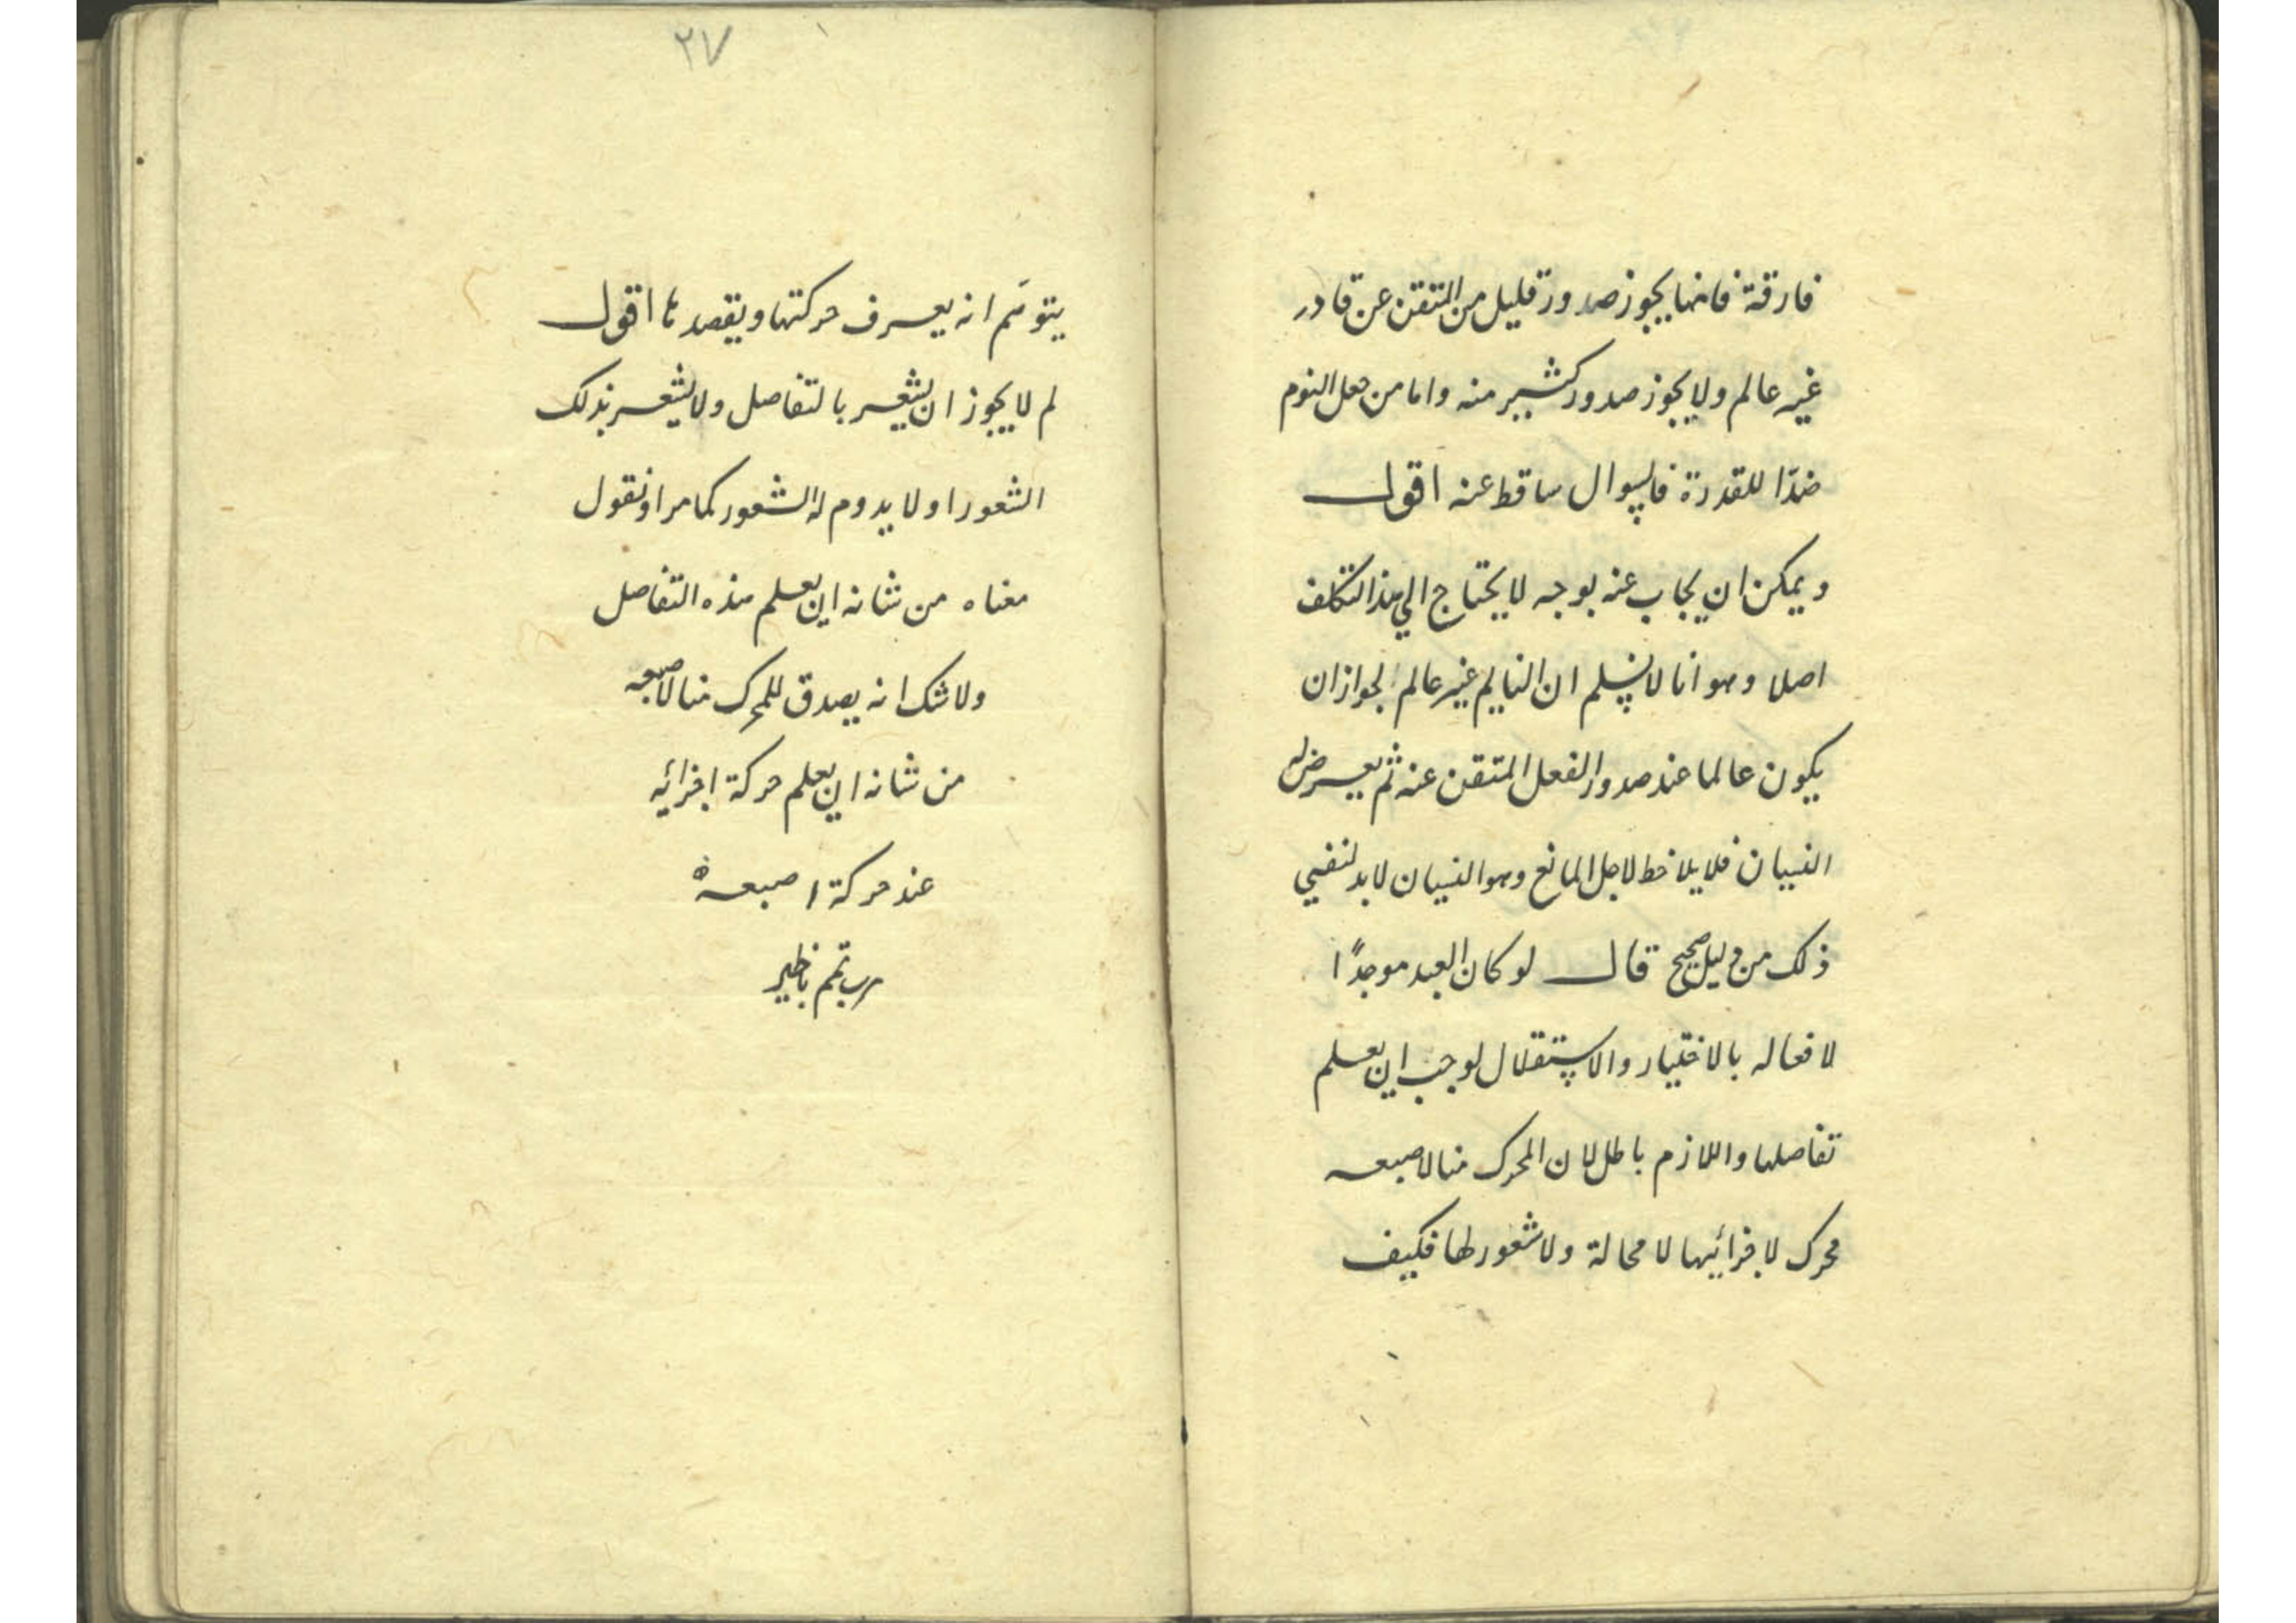 فارقة فانها يجوز صدور قليل من المتقن عن قادر
غير عالم ولا يجوز صدور كثير منه واما من جعل النوم
ضدّا للقدرة فالسوال ساقط عنه اقول
ويمكن ان يجاب عنه بوجه لا يحتاج الي هذا التكلف
اصلا وهو انا لا نسلم ان النايم غير عالم لجواز ان
يكون عالما عند صدور الفعل المتقن عنه ثم يعرض له
النسيان فلا يلاحظ لاجل المانع وهو النسيان لا بد لنفي
ذلك من دليل صحيح قال لو كان العبد موجدًا
لافعاله بالاختيار والاستقلال لوجب ان يعلم
تفاصلها واللازم باطل لان المحرك منا لاصبعه
محرك لاجزائها لا محالة ولا شعور لها فكيف
٢٧
يتوهّم انه يعرف حركتها ويقصدها اقول
لم لا يجوز ان يشعر بالتفاصل ولا يشعر بذلك
الشعور او لا يدوم له الشعور كما مر او نقول
معناه من شانه ان يعلم هذه التفاصل
ولا شك انه يصدق للمحرك منا لاصبعه
من شانه ان يعلم حركة اجزائه
عند حركة اصبعه
رب تمم بالخير